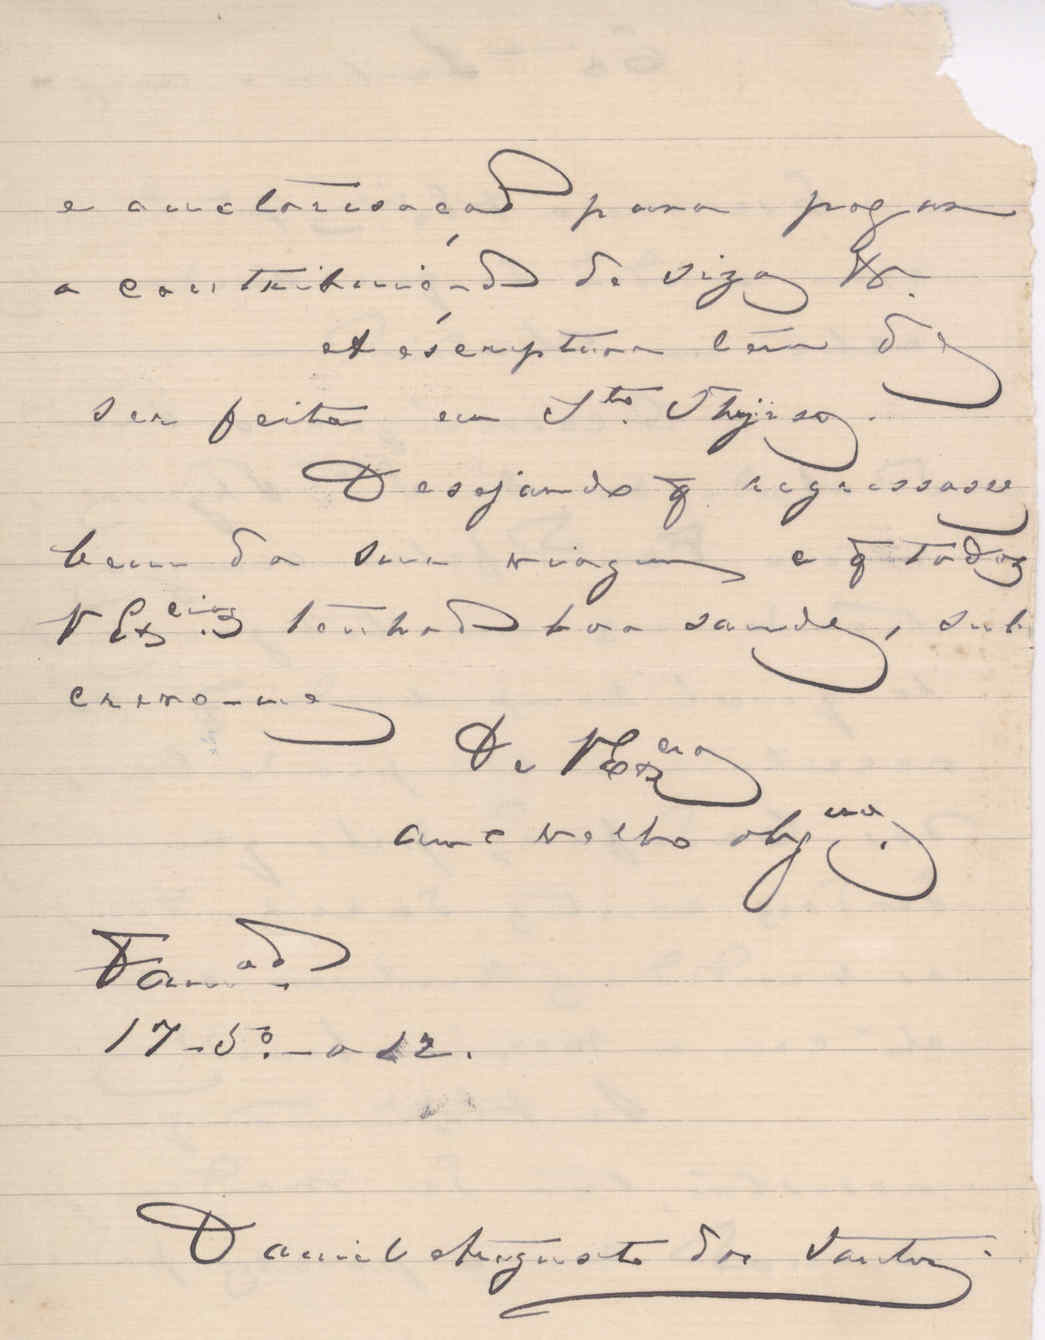 e auctorisação para pagar
a contribuição de siza &.
A escriptura tem de
ser feita em Sto. Thyrso.
Desejando q regressasse
bem da sua viagem e q todos
V Excias. tenhão boa saude, subs
crevo-me
De V Excia
amo e velho obgmo.
Famão.
17-5º-a 12.
Daniel Augusto dos Santos